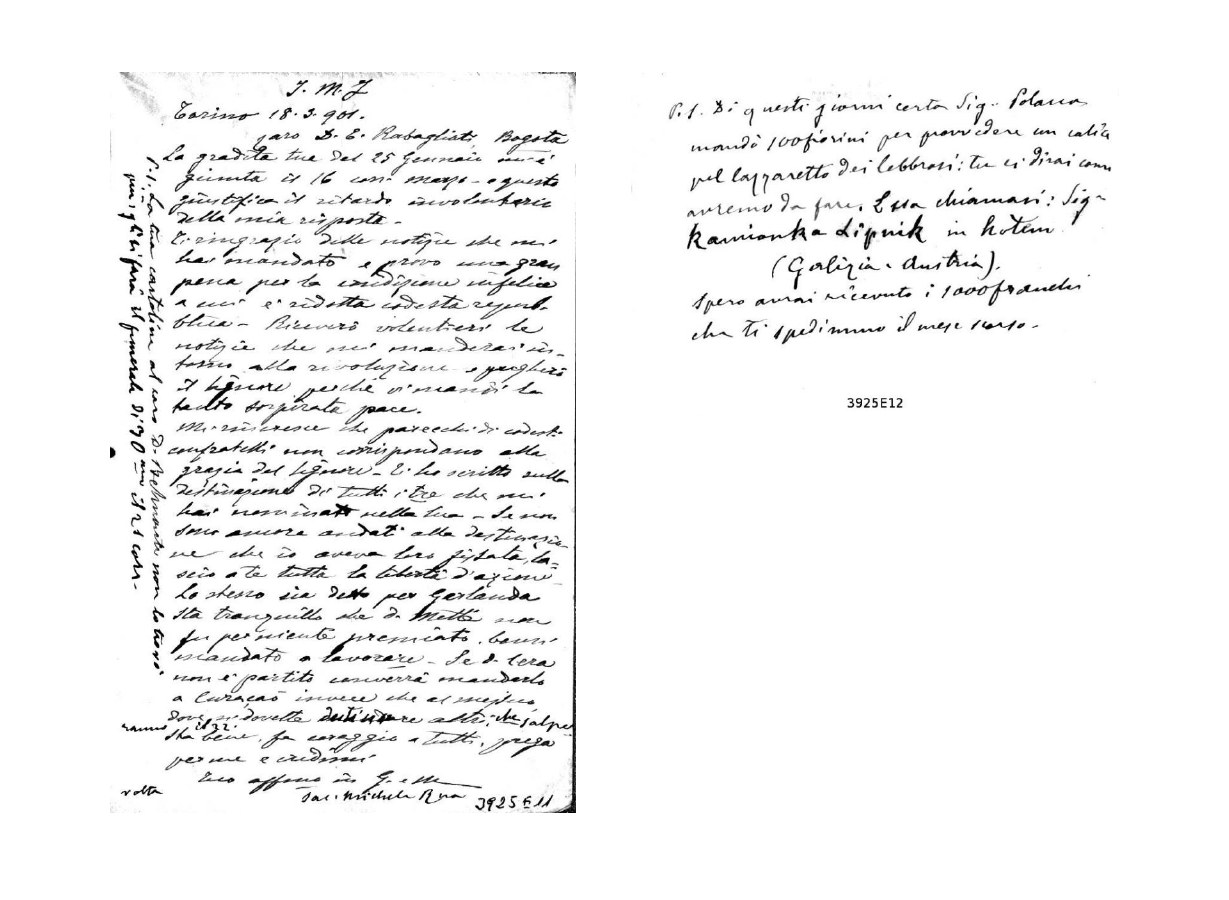 J. M. J
Torino 18. 3. 901.
Caro D. E. Rabagliati, Bogota
La gradita tua del 25 Gennaio mi è
giunta il 16 corr. marzo - e questo
giustifica il ritardo involontario
della mia risposta -
Ti ringrazio delle notizie che mi
hai mandato e provo una gran
pena per la condizione infelice
a cui è ridotta codesta repub-
blica - Riceverò volentieri le
notizie che mi manderai in-
torno alla rivoluzione e pregherò
il Signore perchè vi mandi la
tanto sospirata pace.
Mi rincresce che parecchi di codesti
confratelli non corrispondano alla
grazia del Signore - Ti ho scritto sulla
destinazione di tutti i tre che mi
hai nominato nella tua - Se non
sono ancora andati alla destinazio-
ne che io aveva loro fissata, la-
scio a te tutta la libertà d'azione
Lo stesso sia detto per Gerlanda
Sta tranquillo che D. Mettè non
fu per niente premiato, bensì
mandato a lavorare - Se D.
non è partito converrà mandarlo
a Curaçao invece che al messico
dove si dovette destinare altri, che salpe-
ranno il 22.
Sta bene, fa coraggio a tutti, prega
per me e credimi
Tuo affmo in G. e M
Sac. Michele Rua
volta
3925E11
P. S. La tua cartolina al caro D. Belmonte non lo trovò
più, gli si farà il funerale di 30ma il 21 corr.
P. S. Di questi giorni certa Sig. Polacca
mandò 100 fiorini per provvedere un calice
pel lazzaretto dei lebbrosi: tu ci dirai come
avremo da fare. Essa chiamasi: Sig-
Kamionka Lipnik in Kotem
(Galizia - Austria).
Spero avrai ricevuto i 1000 franchi
che ti spedimmo il mese scorso -
3925E12